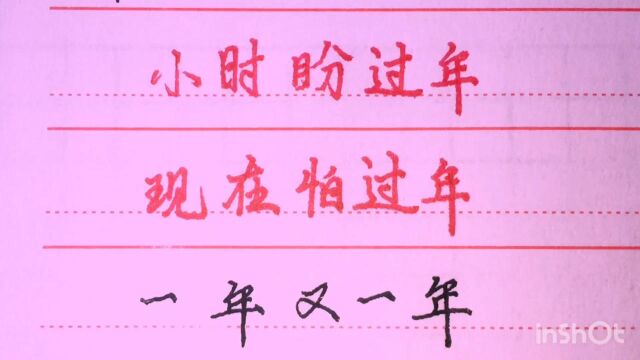 小时盼过年
现在怕过年
一年又一年
InShOt